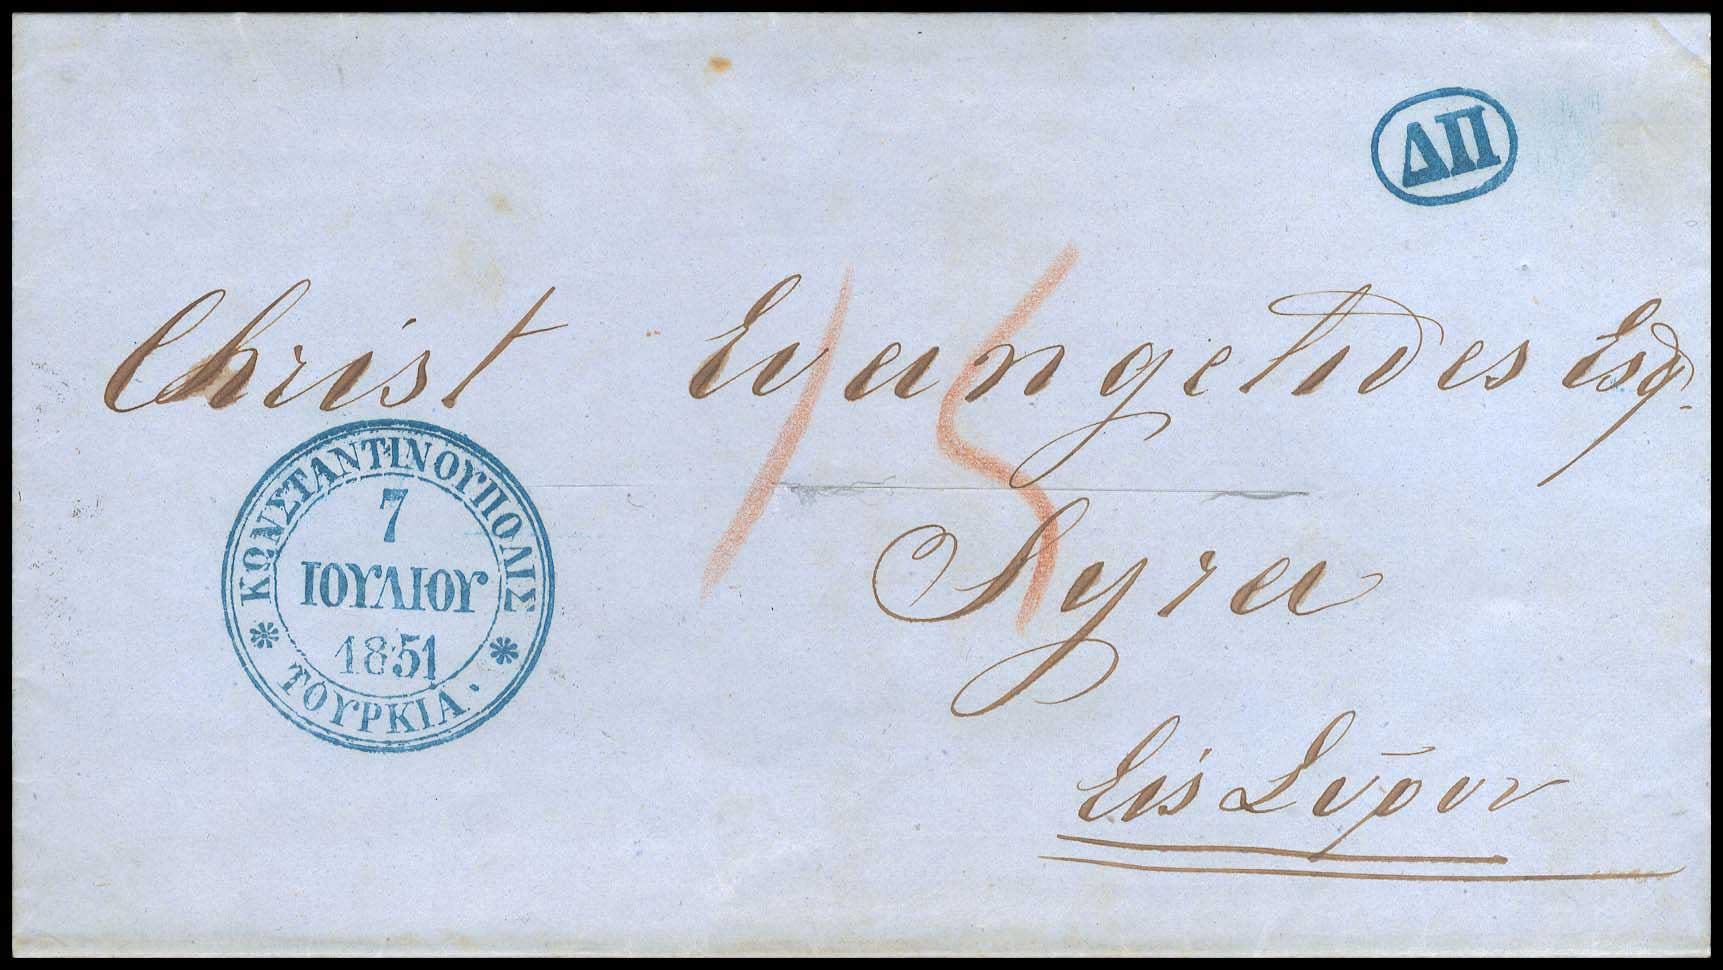 ΔΠ
Christ Evangelides Esq.
15
ΚΩΝΣΤΑΝΤΙΝΟΥΠΟΛΙΣ
7
ΙΟΥΛΙΟΥ
1851
* ΤΟΥΡΚΙΑ. *
Syra
Εἰς Σῦρον